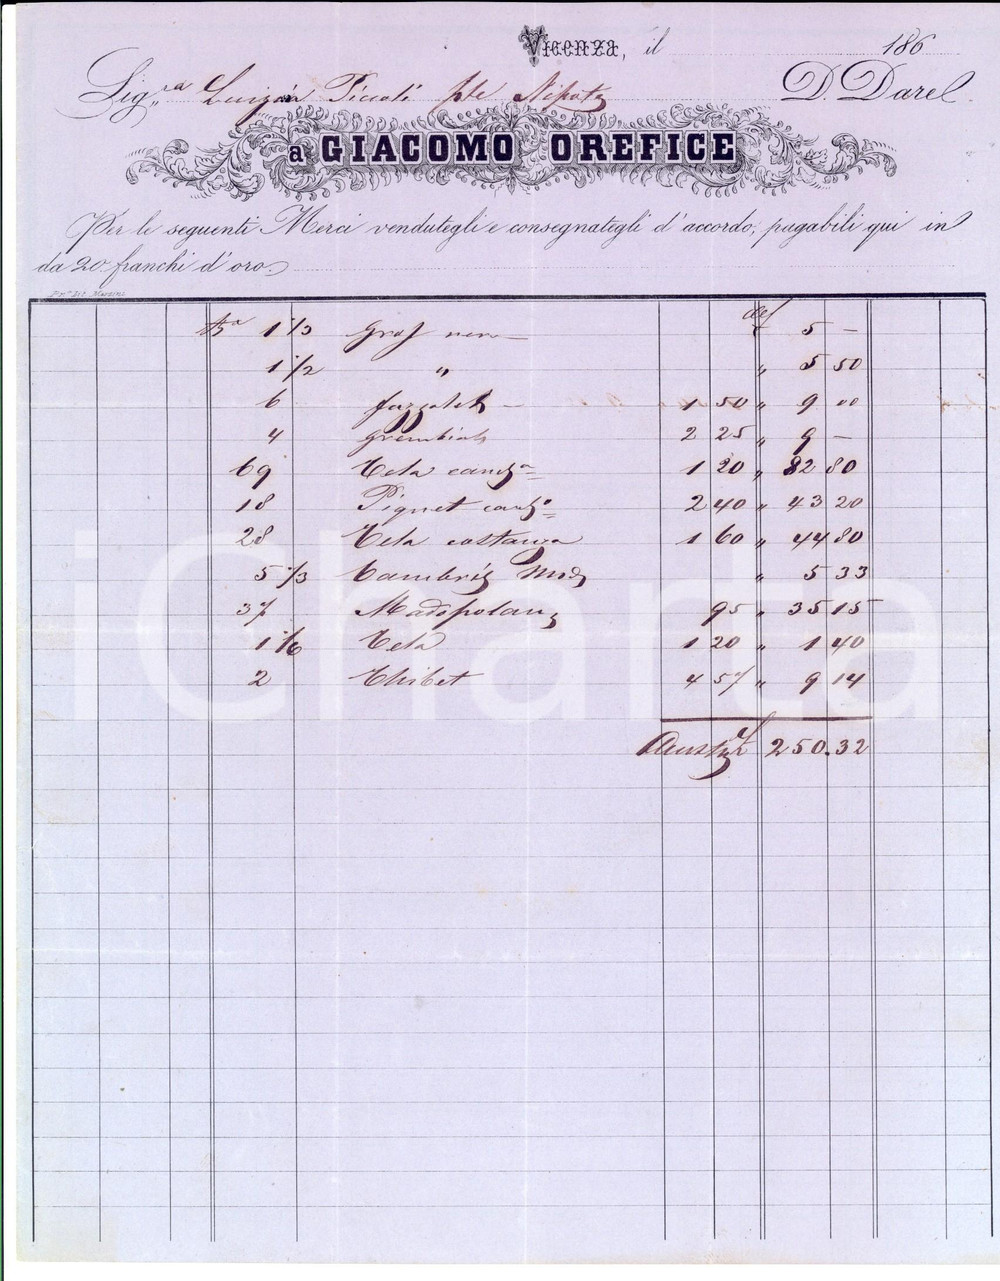 Vicenza, il 186
Sig.ra Luigia Piccoli
D. Darel
a GIACOMO OREFICE
Per le seguenti Merci vendutegli e consegnategli d'accordo, pagabili qui in
da 20 franchi d'oro.
1 1/3 nero 5 —
1 1/2 " " 5 50
6 1 50 " 9 00
4 Grembiali 2 25 " 9 —
69 Tela 1 20 " 82 80
18 Piquet 2 40 " 43 20
28 Tela costanza 1 60 " 44 80
5 1/3 Cambrig " 5 33
37 Madapolam 95 " 35 15
1 1/6 Tela 1 20 " 1 40
2 Thibet 4 57 " 9 14
250.32
iCharta